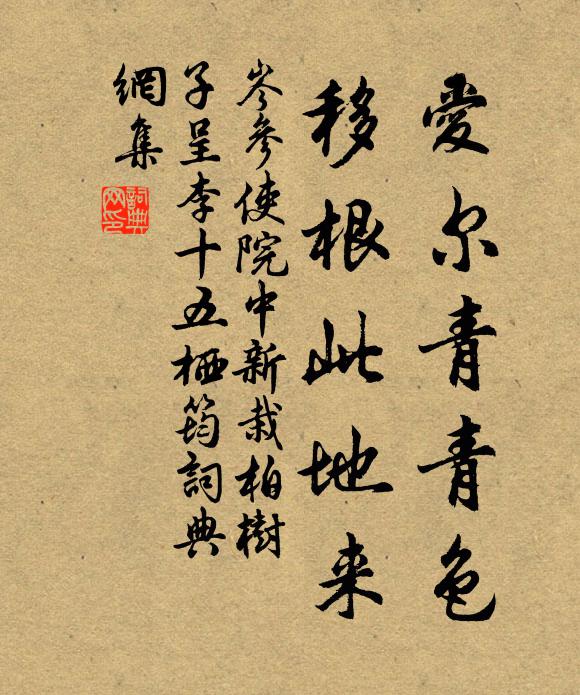 愛尔青青色
移根此地来
岑參使院中新栽柏樹
子呈李十五栖筠詞典
網集
詞典
网印